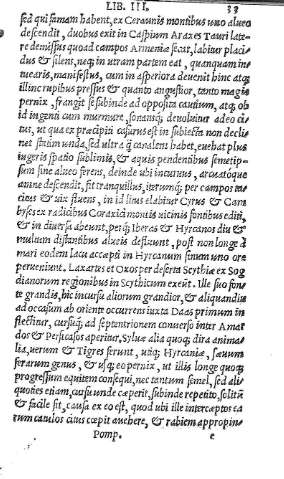 LIB. III. 33
sed qui famam habent, ex Ceraunis montibus uno alueo
descendit, duobus exit in Caspium Araxes Tauri late-
re demissus quoad campos Armeniæ secat, labitur placi
dus & silens, neq; in utram partem eat, quanquam in-
tuearis, manifestus, cum in asperiora deuenit hinc atq;
illinc rupibus pressus & quanto angustior, tanto magis
pernix, frangit se subinde ad opposita cautium, atq; ob
id ingenti cum murmure, sonansq; deuoluitur adeo ci-
tus, ut qua ex præcipiti casurus est in subiecta non decli
net statim unda, sed ultra q̃ canalem habet, euehat plus
iugeris spatio sublimis, & aquis pendentibus semetip-
sum sine alueo ferens, deinde ubi incuruus, arcuatoque
amne descendit, fit tranquillus, iterumq; per campos ta-
citus & uix fluens, in id litus elabitur Cyrus & Cam
byses ex radicibus Coraxici montis uicinis fontibus editi,
& in diuersa abeunt, perq; Iberas & Hyrcanos diu &
multum distantibus alueis defluunt, post non longe à
mari eodem lacu accepti in Hyrcanum sinum uno ore
perueniunt. Iaxartes et Oxos per deserta Scythiæ ex Sog
dianorum regionibus in Scythicum exeūt. Ille suo fon-
te grandis, hic incursu aliorum grandior, & aliquandiu
ad occasum ab oriente occurrens iuxta Daas primum in
flectitur, cursuq; ad septentrionem conuerso inter Amar
dos & Persicas aperitur, Syluæ alia quoq; dira anima-
lia, uerum & Tigres ferunt, utiq; Hyrcaniæ, sæuum
ferarum genus, & usq; eo pernix, ut illis longe quoq;
progressum equitem consequi, nec tantum semel, sed ali-
quoties etiam, cursu unde cœperit, subinde repetito, solitū
& facile sit, causa ex eo est, quod ubi ille interceptos ea
rum catulos citus cœpit auehere, & rabiem appropin-
Pomp. e